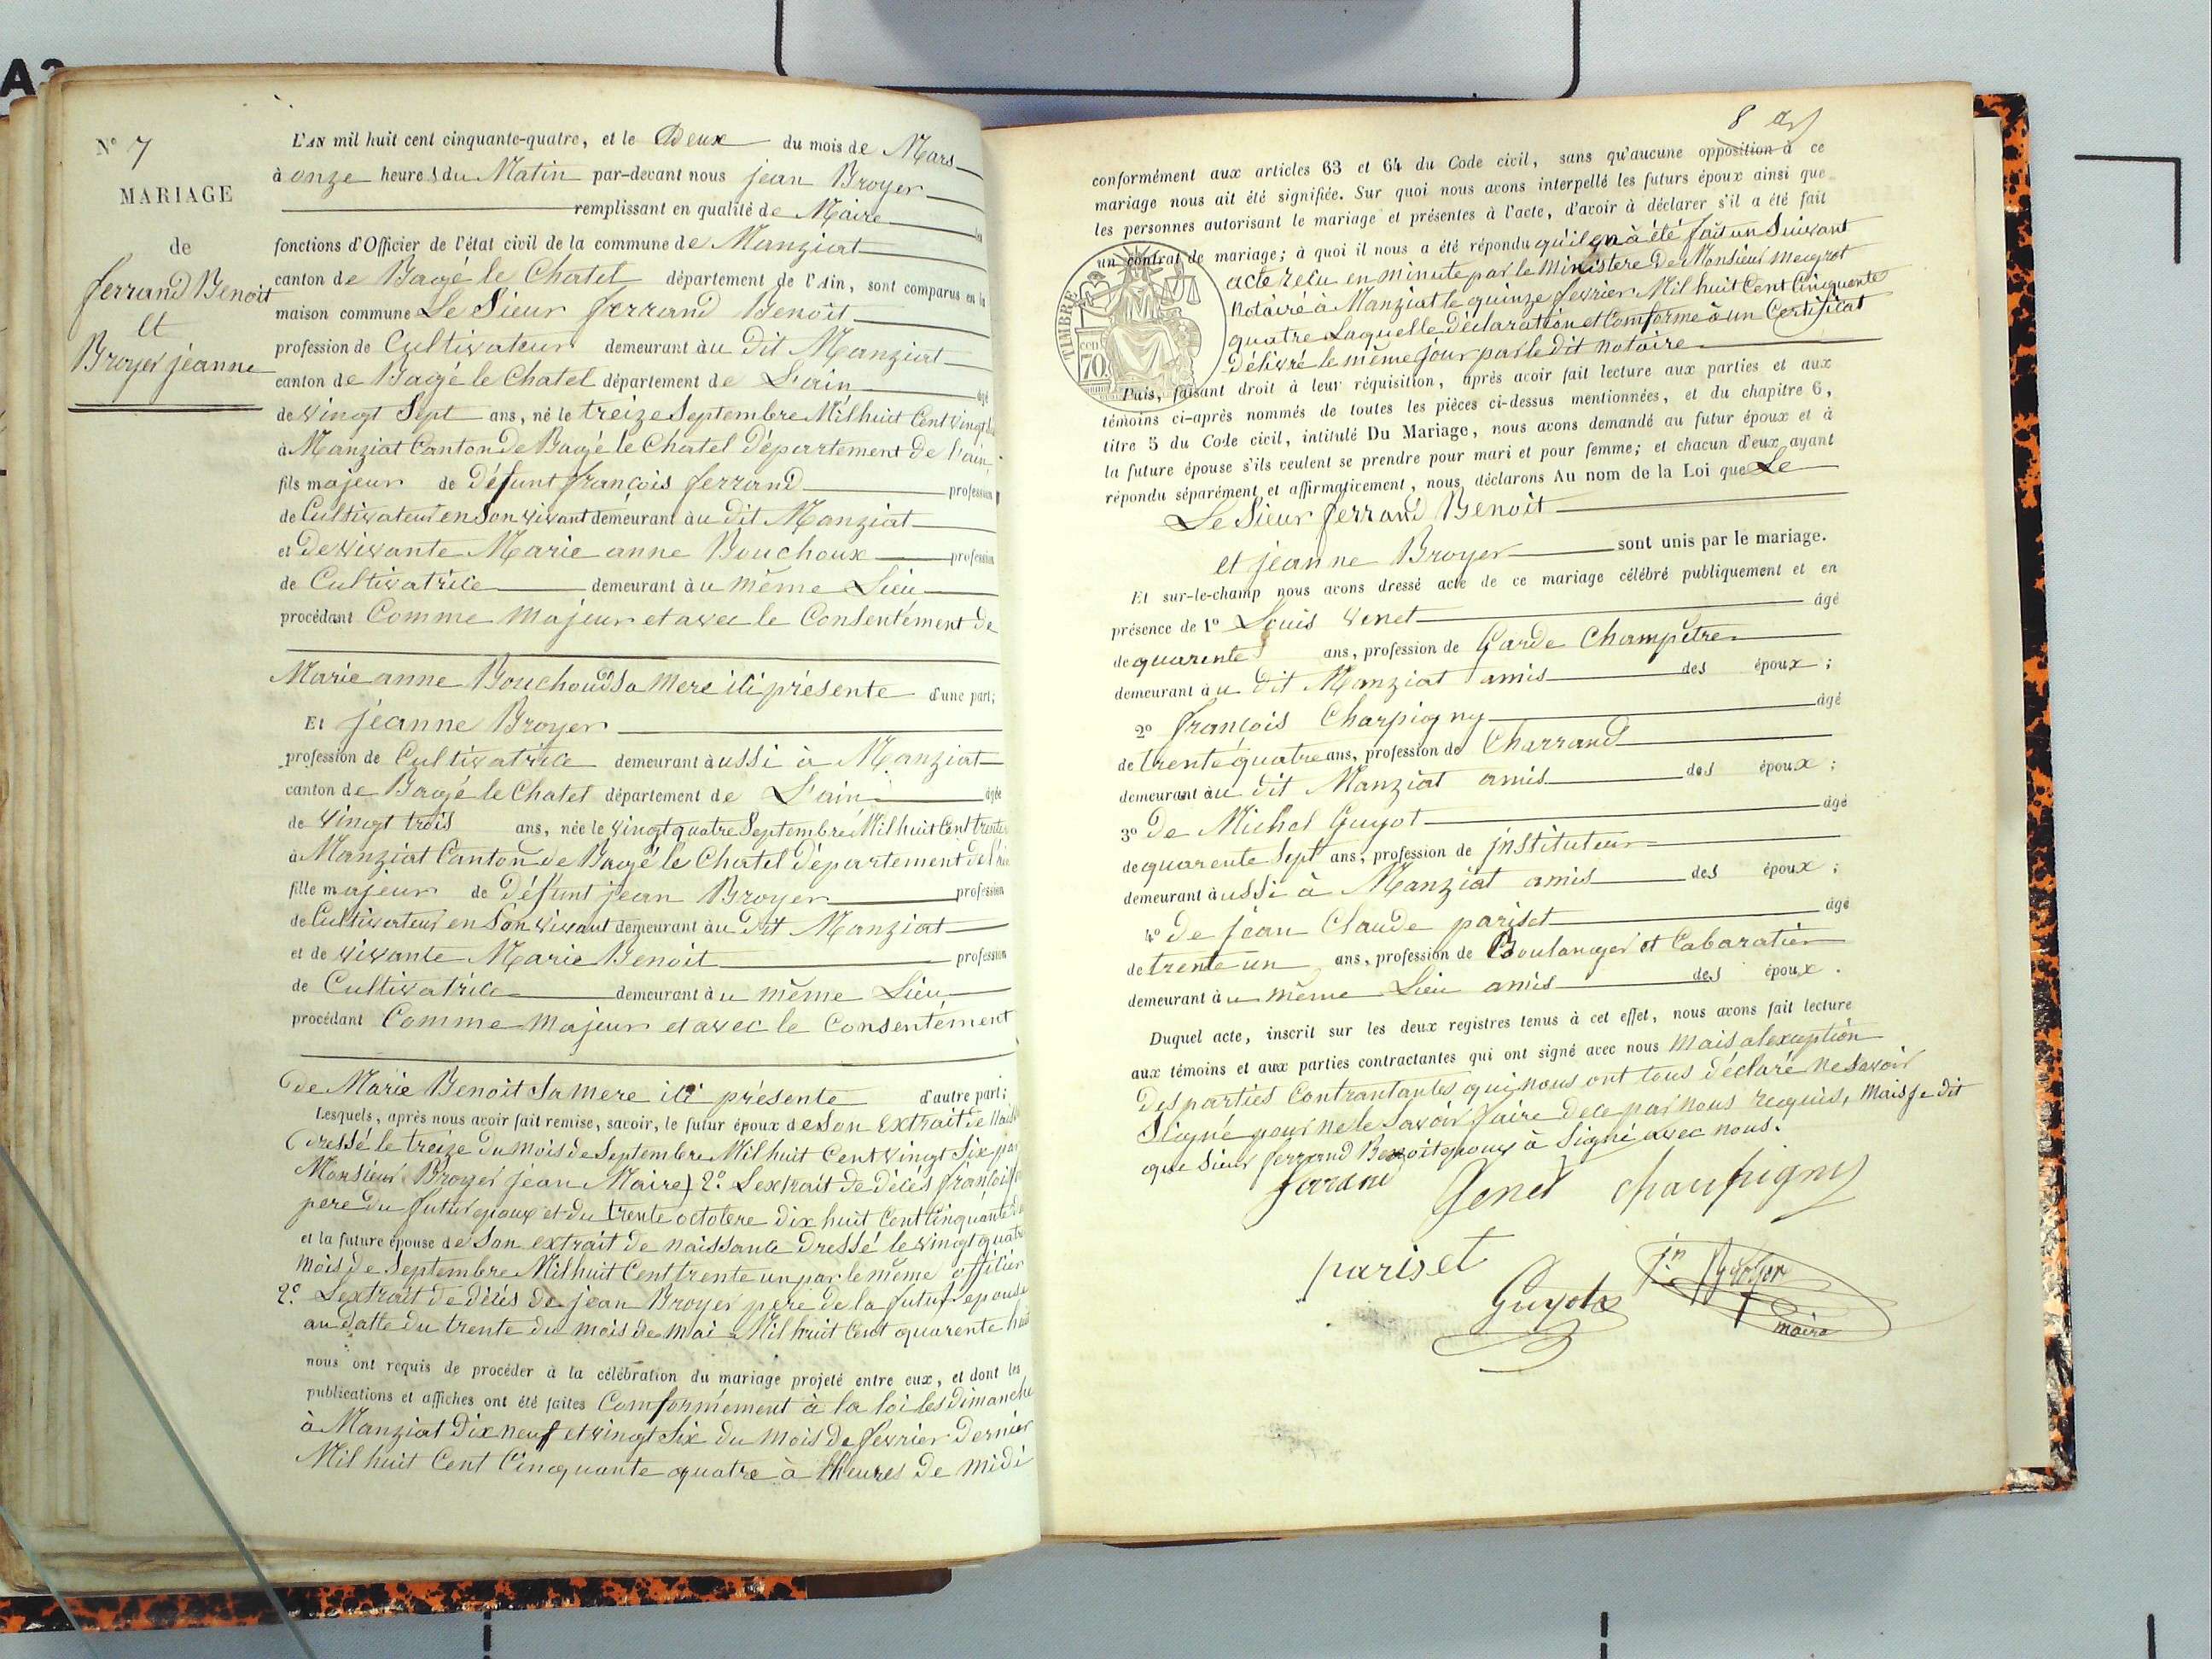 A3
N° 7
MARIAGE
de
ferrand Benoit
Et
Broyer jeanne
L'AN mil huit cent cinquante-quatre, et le Deux du mois de Mars
à onze heures du Matin par-devant nous jean Broyer
remplissant en qualité de Maire les
fonctions d'Officier de l'état civil de la commune de Manziat
canton de Bagé le Chatel département de l'Ain, sont comparus en la
maison commune Le Sieur ferrand Benoit
profession de Cultivateur demeurant àu dit Manziat
canton de Bagé le Chatel département de L'ain âgé
de vingt Sept ans, né le treize Septembre Mil huit Cent vingt
à Manziat Canton de Bagé le Chatel Département de l'ain
fils majeur de Défunt françois ferrand profession
de Cultivateur en Son vivant demeurant àu dit Manziat
et de vivante Marie anne Bouchoux profession
de Cultivatrice demeurant àu même Lieu
procédant Comme majeur et avec le Consentement de
Marie anne Bouchoux Sa mere ici présente d'une part;
Et jeanne Broyer
profession de Cultivatrice demeurant àussi à Manziat
canton de Bagé le Chatel département de L'ain âgée
de vingt trois ans, née le vingt quatre Septembre Mil huit Cent trente
à Manziat Canton de Bagé le Chatel Département de l'
fille majeur de Défunt jean Broyer profession
de Cultivateur en Son vivant demeurant àu Dit Manziat
et de vivante Marie Benoit profession
de Cultivatrice demeurant àu même Lieu
procédant Comme majeur et avec le Consentement
de Marie Benoit Sa mere ici présente d'autre part;
Lesquels, après nous avoir fait remise, savoir, le futur époux de Son Extrait de
(dressé le treize du mois de Septembre Mil huit Cent vingt Six par
Monsieur Broyer jean Maire) 2° L'extrait de décès françois
pere du futur epoux et du trente octobre dix huit Cent Cinquante
et la future épouse de San extrait de naissance Dressé le vingt quatre
mois de Septembre Mil huit Cent trente un par le même officier
2° L'extrait de décès de jean Broyer pere de la futur epouse
au datte du trente du mois de mai Mil huit Cent quarente huit
nous ont requis de procéder à la célébration du mariage projeté entre eux, et dont les
publications et affiches ont été faites Comformément à la loi les dimanche
à Manziat Dix neuf et vingt Six du mois De fevrier Dernier
Mil huit Cent Cinquante quatre à heures De midi
8
conformément aux articles 63 et 64 du Code civil, sans qu'aucune opposition à ce
mariage nous ait été signifiée. Sur quoi nous avons interpellé les futurs époux ainsi que
les personnes autorisant le mariage et présentes à l'acte, d'avoir à déclarer s'il a été fait
un contrat de mariage; à quoi il nous a été répondu qu'il en à été fait un Suivant
acte recu en minute par le ministere De Monsieur meugrot
notaire à Manziat le quinze fevrier Mil huit Cent Cinquante
quatre Laquelle déclaration et Comforme à un Certificat
Délivré le même jour par le dit notaire
TIMBRE
cent
70
Puis, faisant droit à leur réquisition, après avoir fait lecture aux parties et aux
témoins ci-après nommés de toutes les pièces ci-dessus mentionnées, et du chapitre 6,
titre 5 du Code civil, intitulé Du Mariage, nous avons demandé au futur époux et à
la future épouse s'ils veulent se prendre pour mari et pour femme; et chacun d'eux ayant
répondu séparément et affirmativement, nous déclarons Au nom de la Loi que Le
Le Sieur ferrand Benoit
et jeanne Broyer sont unis par le mariage.
Et sur-le-champ nous avons dressé acte de ce mariage célébré publiquement et en
présence de 1° Louis venet âgé
de quarente ans, profession de Garde Champêtre
demeurant àu dit Manziat amis des époux;
2° françois Charpigny âgé
de trente quatre ans, profession de Charrand
demeurant àu dit Manziat amis des époux;
3° De Michel Guyot âgé
de quarente Sept ans, profession de jnstituteur
demeurant àussi à Manziat amis des époux;
4° de jean Claude pariset âgé
de trente un ans, profession de Boulanger et Cabaratier
demeurant àu même Lieu amis des époux.
Duquel acte, inscrit sur les deux registres tenus à cet effet, nous avons fait lecture
aux témoins et aux parties contractantes qui ont signé avec nous mais alexception
des parties Contrantantes qui nous ont tous déclaré ne Savoir
Signé pour ne le Savoir faire de ce par nous requis, mais je dit
que Sieur ferrand Benoit epoux à Signé avec nous.
ferrand Venet Charpigny
pariset Guyot jn Broyer
maire